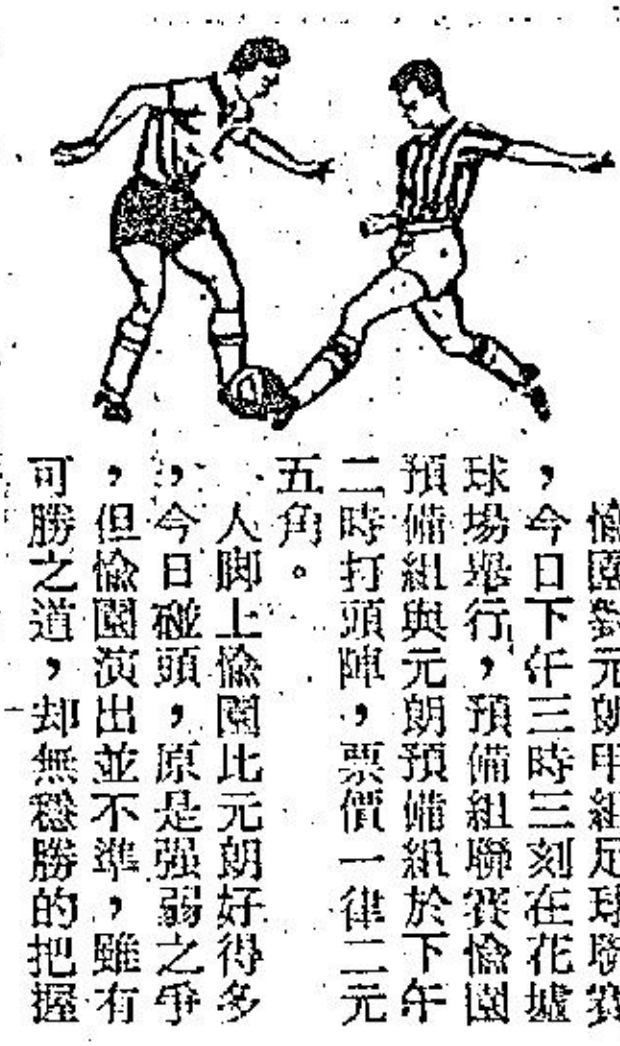 愉園對元朗甲組足球聯賽
，今日下午三時三刻在花墟
球場舉行，預備組聯賽愉園
預備組與元朗預備組於下午
二時打頭陣，票價一律二元
五角。
人脚上愉園比元朗好得多
，今日碰頭，原是强弱之爭
，但愉園演出並不準，雖有
可勝之道，却無穩勝的把握